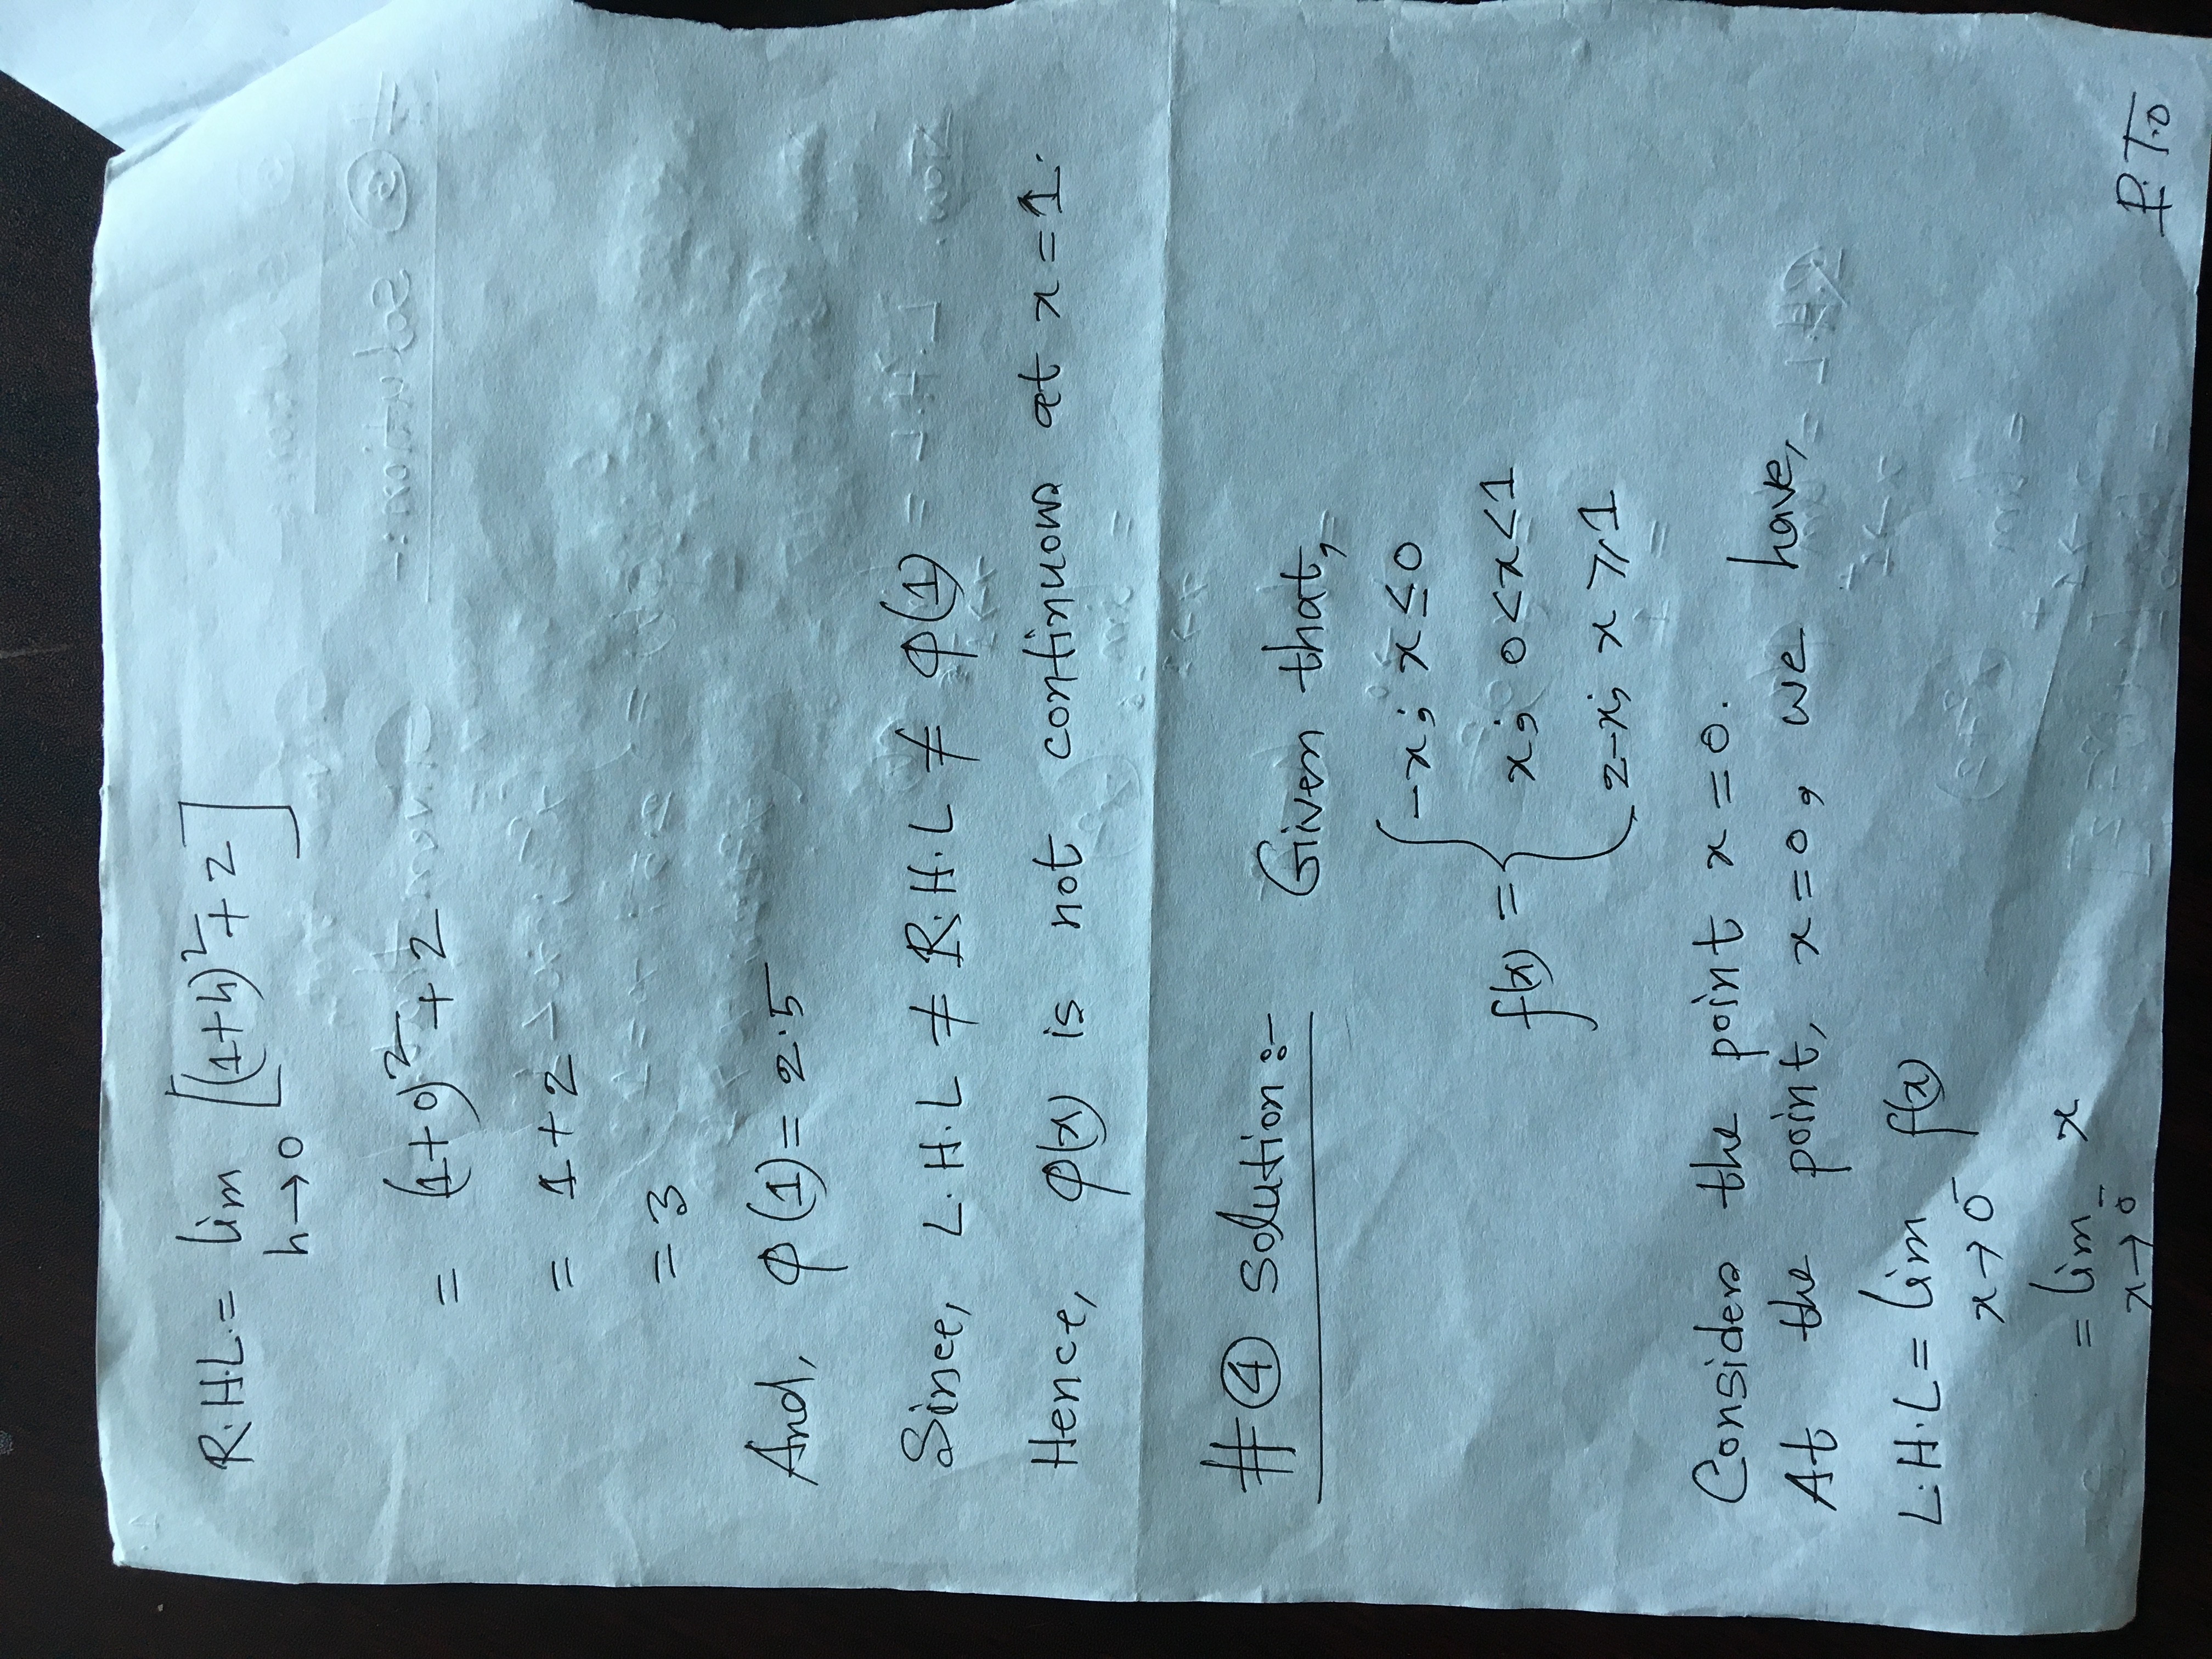 R.H.L. = lim [(1+h)² + 2]
h→0
= (1+0)² + 2
= 1+2
= 3
And, φ(1) = 2.5
Since, L.H.L ≠ R.H.L ≠ φ(1)
Hence, φ(x) is not continuous at x = 1.
#④ Solution :-
Given that,
-x; x ≤ 0
f(x) = { x; 0<x<1
2-x; x ⩾ 1
Consider the point x = 0.
At the point, x = 0, we have,
L.H.L = lim f(x)
x→0⁻
= lim x
x→0⁻
P.T.O